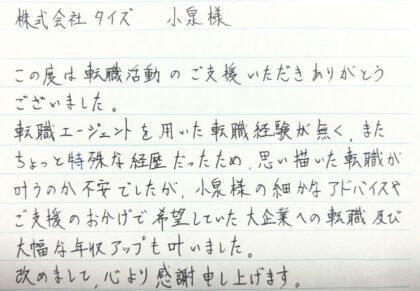 株式会社タイズ 小泉様
この度は転職活動のご支援いただきありがとう
ございました。
転職エージェントを用いた転職経験が無く、また
ちょっと特殊な経歴だったため、思い描いた転職が
叶うのか不安でしたが、小泉様の細かなアドバイスや
ご支援のおかげで希望していた大企業への転職及び
大幅な年収アップも叶いました。
改めまして、心より感謝申し上げます。